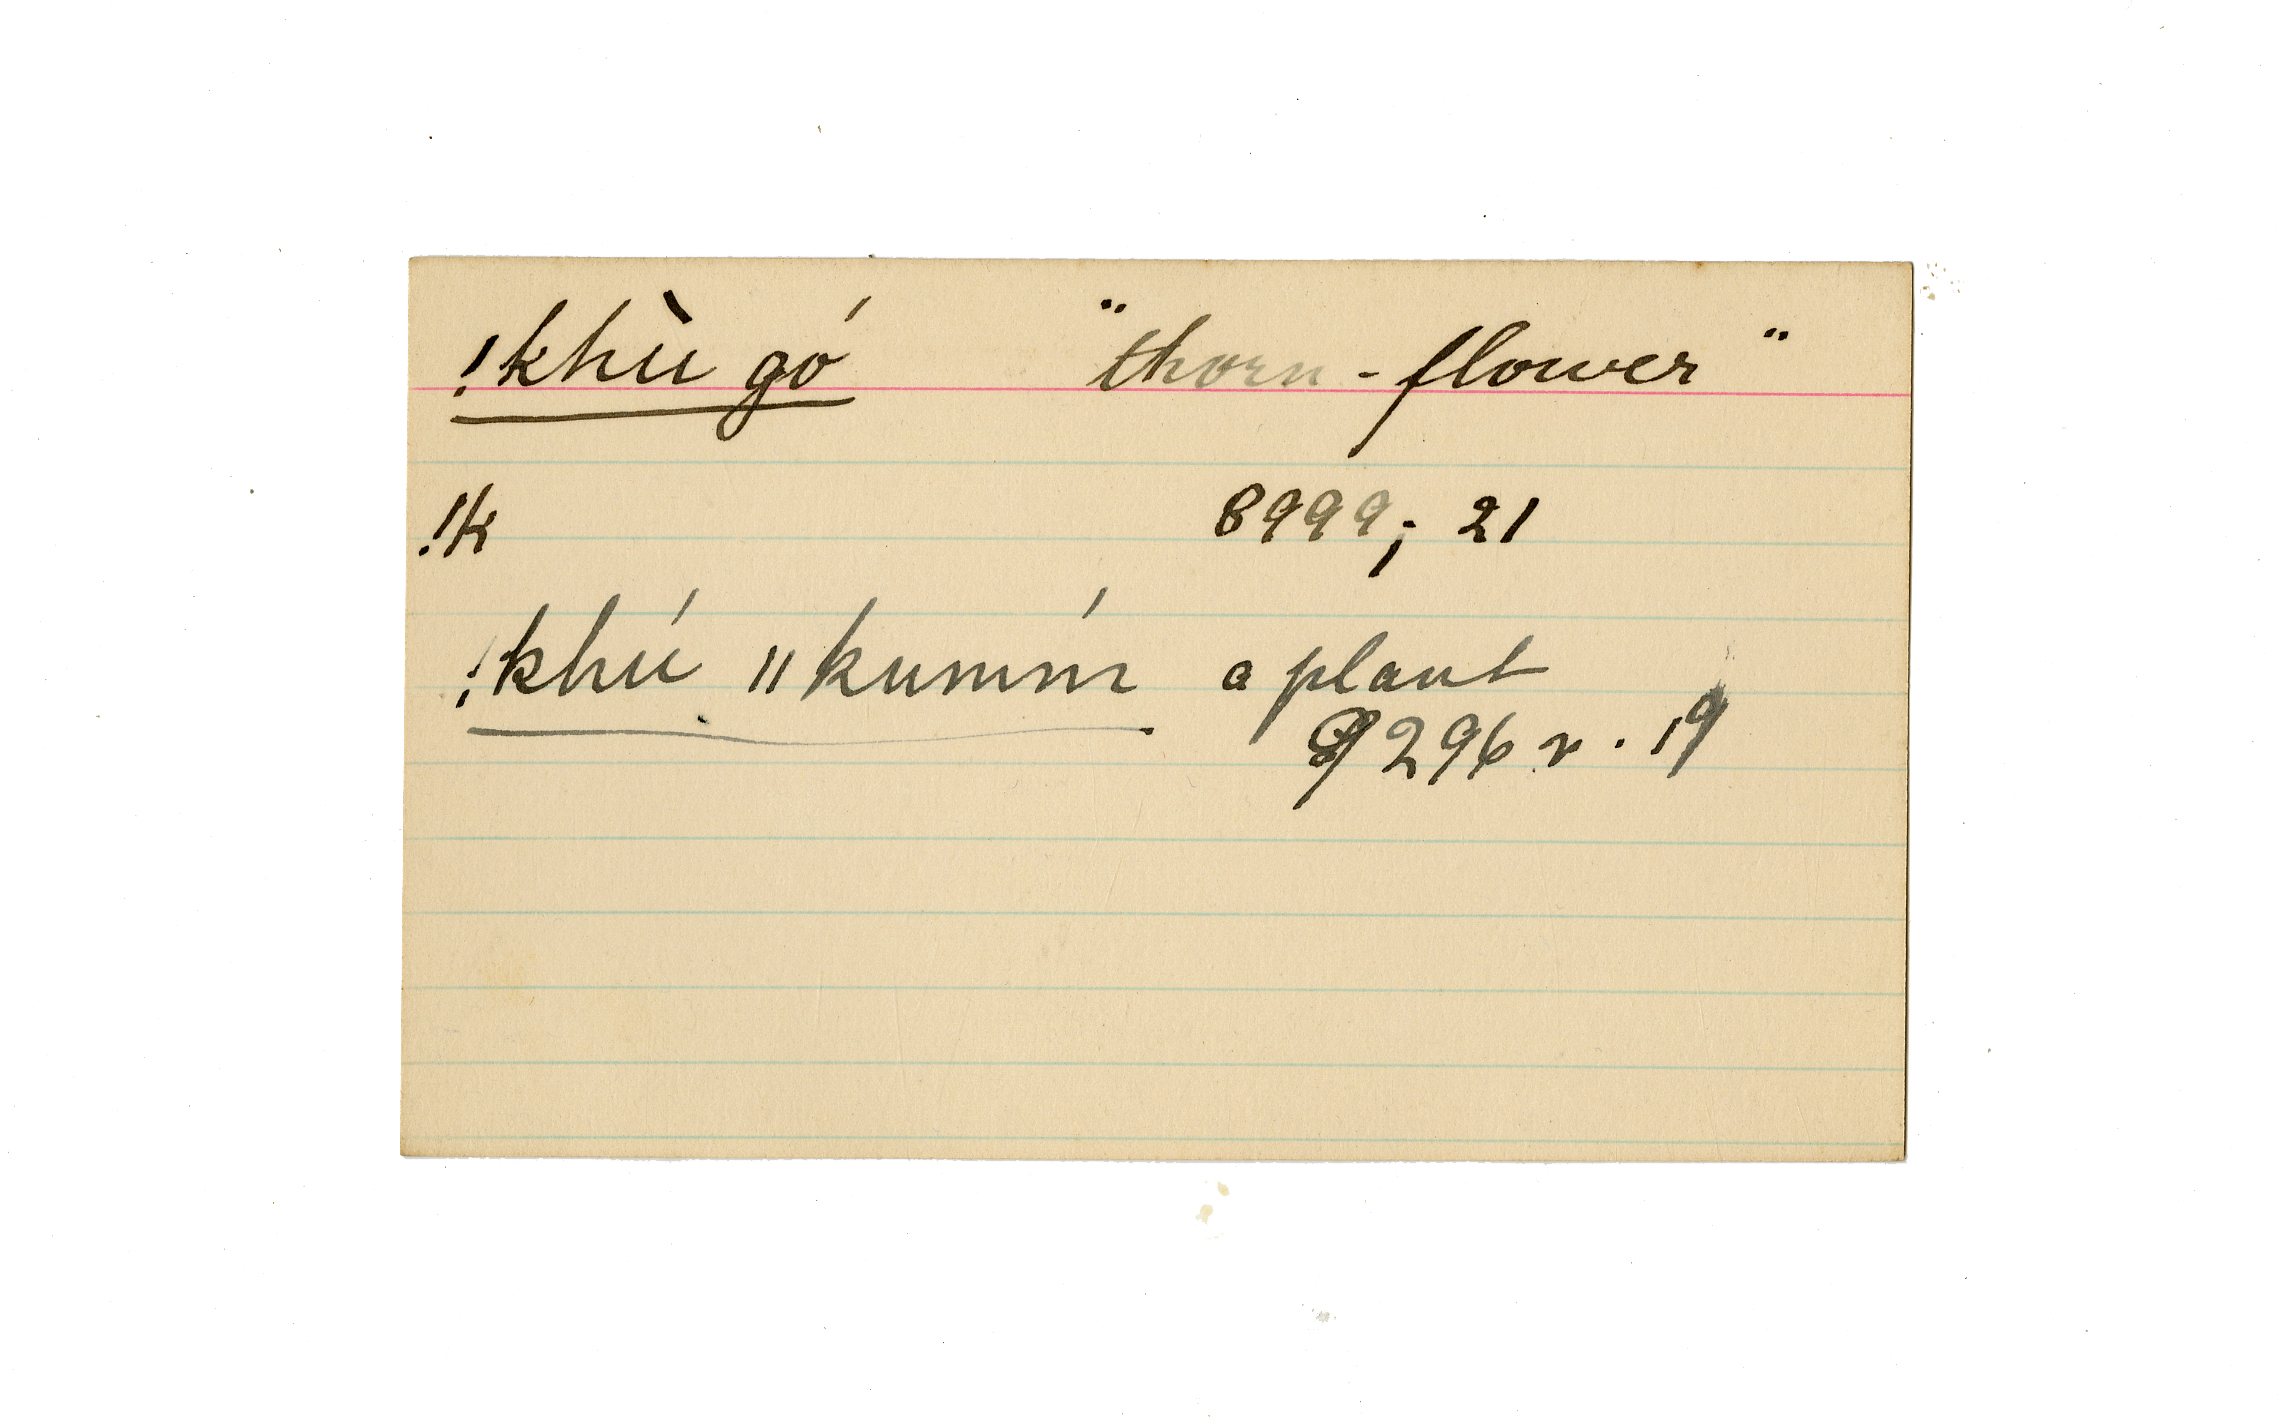 !khù gó "thorn-flower"
!k 8999; 21
!khú ǁkumḿ a plant
9296 v. 19